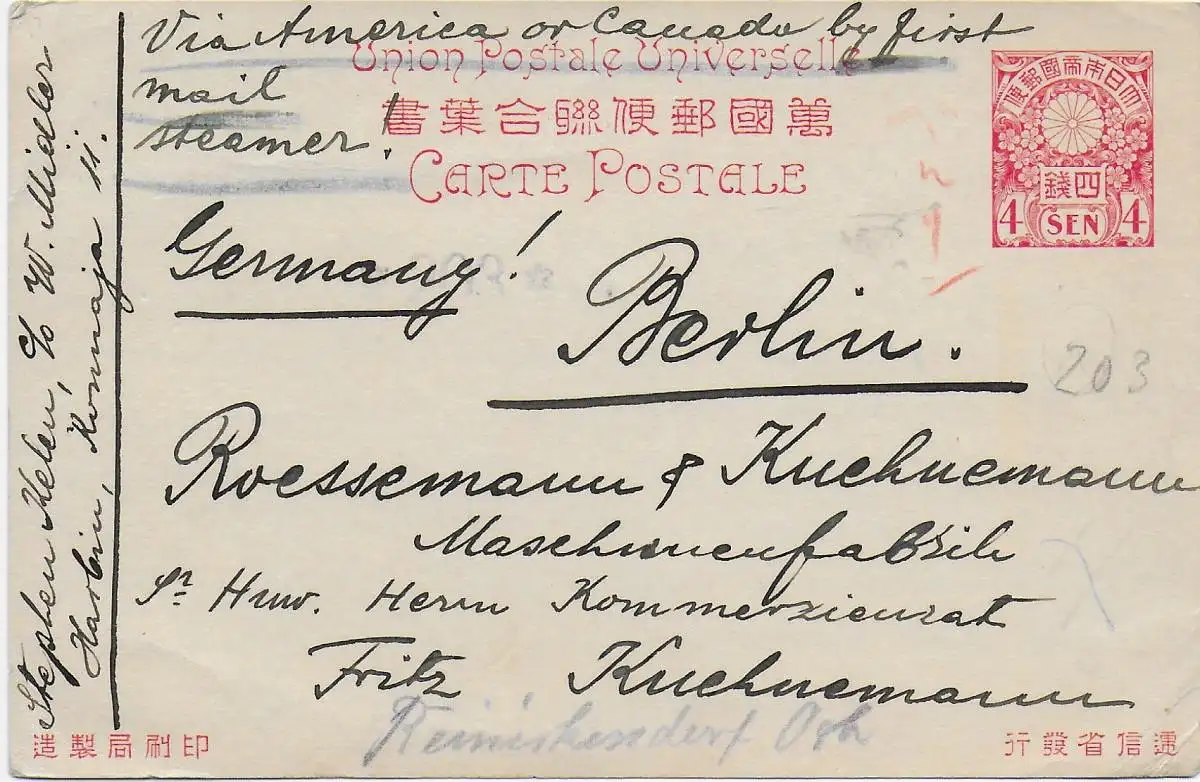 Via America or Canada by first
mail
steamer!
Union Postale Universelle
萬國郵便聯合葉書
CARTE POSTALE
大日本帝國郵便
四錢
4 SEN 4
Germany!
Berlin.
203
Roessemann & Kuehnemann
Maschinenfabrik
Sr. Hww. Herrn Kommerzienrat
Fritz Kuehnemann
Reinickendorf Ost
Stephen Kelen, c/o W. Midler
Harlin, Konnaja 11.
印刷局製造
遞信省發行